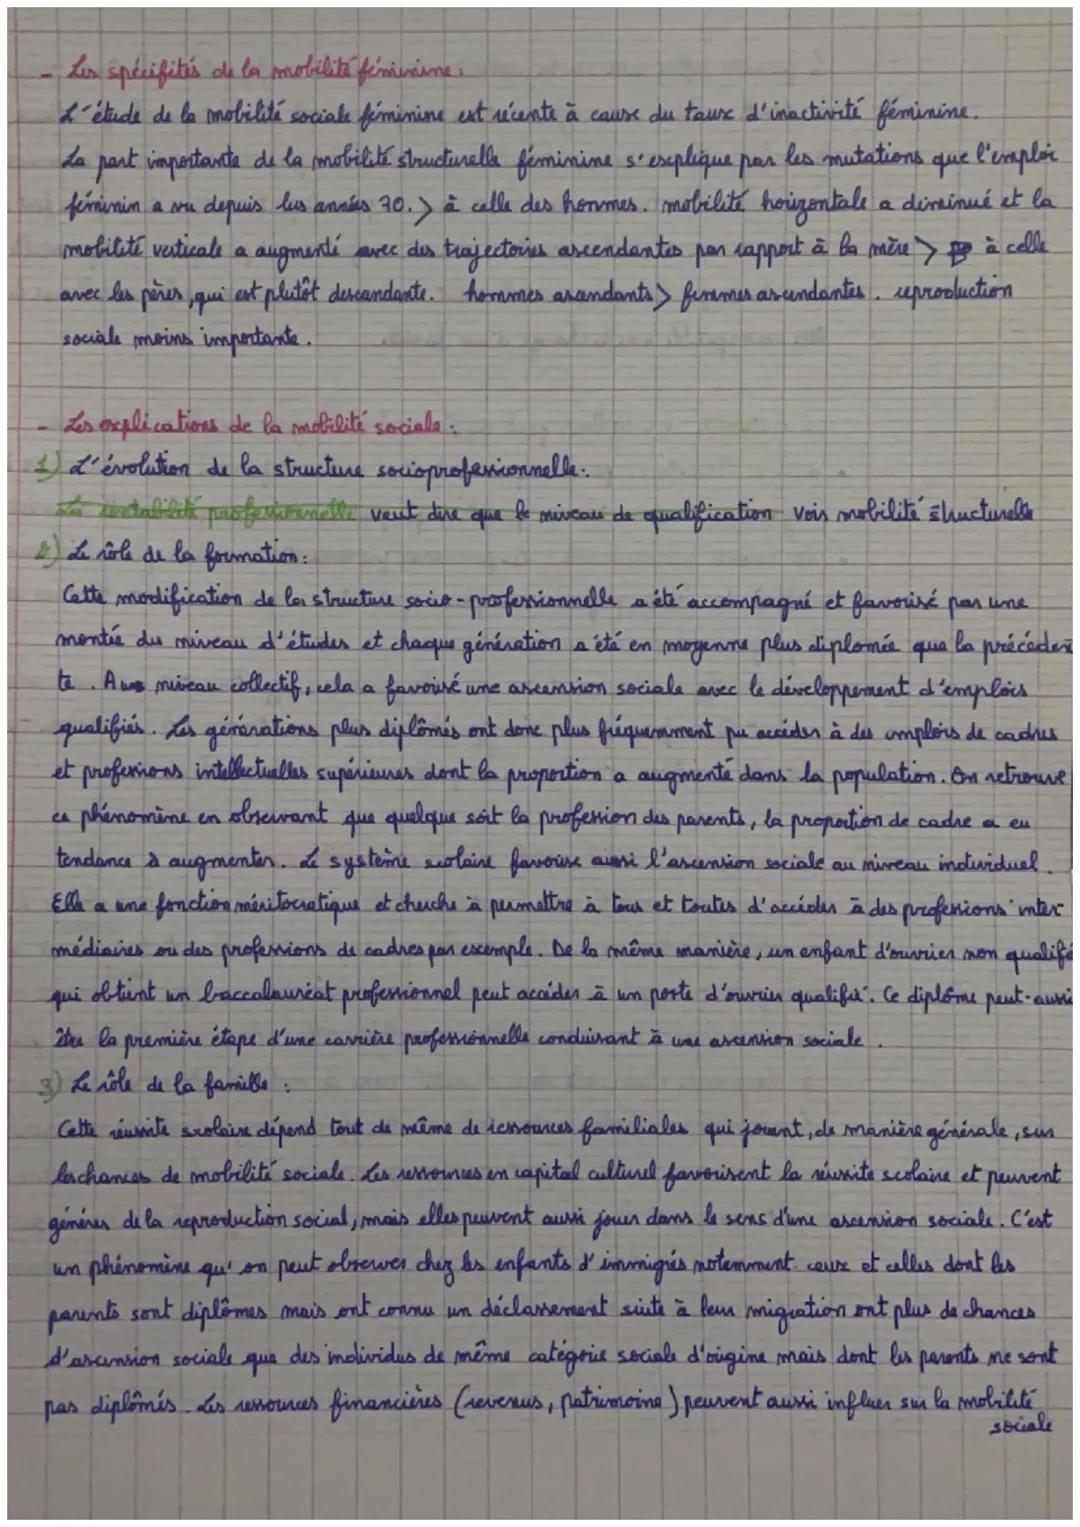 - Les spécifités de la mobilité féminine :
L'étude de la mobilité sociale féminine est récente à cause du taux d'inactivité féminine.
La part importante de la mobilité structurelle féminine s'explique par les mutations que l'emploi
féminin a vu depuis les années 70. > à celle des hommes. mobilité horizontale a diminué et la
mobilité verticale a augmenté avec des trajectoires ascendantes par rapport à la mère > à celle
avec les pères, qui est plutôt descandante. hommes asandants > femmes ascendantes. reproduction
sociale moins importante.
- Les explications de la mobilité sociale :
1) L'évolution de la structure socioprofessionnelle :
La rentabilité professionnelle veut dire que le niveau de qualification voir mobilité structurelle
2) Le rôle de la formation :
Cette modification de la structure socio-professionnelle a été accompagné et favorisé par une
montée du niveau d'études et chaque génération a été en moyenne plus diplomée que la précéden
te. Au niveau collectif, cela a favorisé une ascension sociale avec le développement d'emplois
qualifiés. Les générations plus diplômés ont donc plus fréquemment pu accéder à des emplois de cadres
et professions intellectuelles supérieures dont la proportion a augmenté dans la population. On retrouve
ce phénomène en observant que quelque soit la profession des parents, la proportion de cadre a eu
tendance à augmenter. Le système scolaire favorise aussi l'ascension sociale au niveau individuel.
Elle a une fonction méritocratique et cherche à permettre à tous et toutes d'accéder à des professions inter-
médiaires ou des professions de cadres par exemple. De la même manière, un enfant d'ouvrier non qualifé
qui obtient un baccalauréat professionnel peut accéder à un poste d'ouvrier qualifié. Ce diplôme peut-aussi
être la première étape d'une carrière professionnelle conduisant à une ascension sociale.
3) Le rôle de la famille :
Cette réussite scolaire dépend tout de même de ressources familiales qui jouent, de manière générale, sur
les chances de mobilité sociale. Les ressources en capital culturel favorisent la réussite scolaire et peuvent
générer de la reproduction social, mais elles peuvent aussi jouer dans le sens d'une ascension sociale. C'est
un phénomène qu'on peut observer chez les enfants d'immigrés notemment ceux et celles dont les
parents sont diplômes mais ont connu un déclassement suite à leur migration ont plus de chances
d'ascension sociale que des individus de même catégorie sociale d'origine mais dont les parents ne sont
pas diplômés. Les ressources financières (revenus, patrimoine) peuvent aussi influer sur la mobilité
sociale